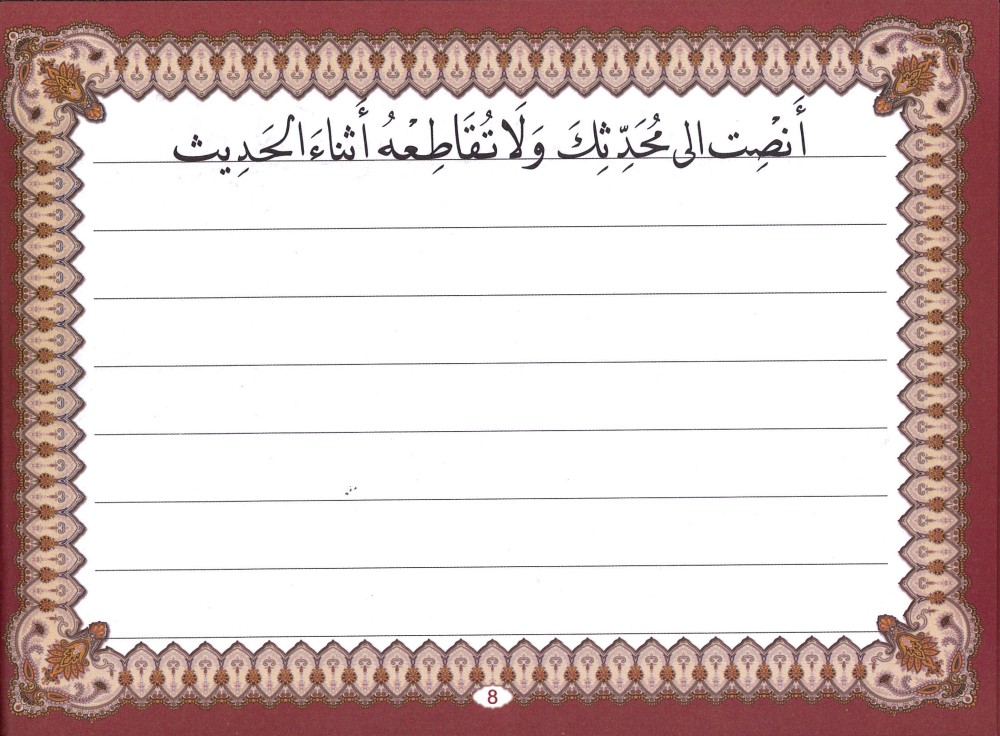 أَنْصِت الى مُحَدِّثِكَ وَلَا تُقَاطِعْهُ أَثناءَ الْحَدِيث
8